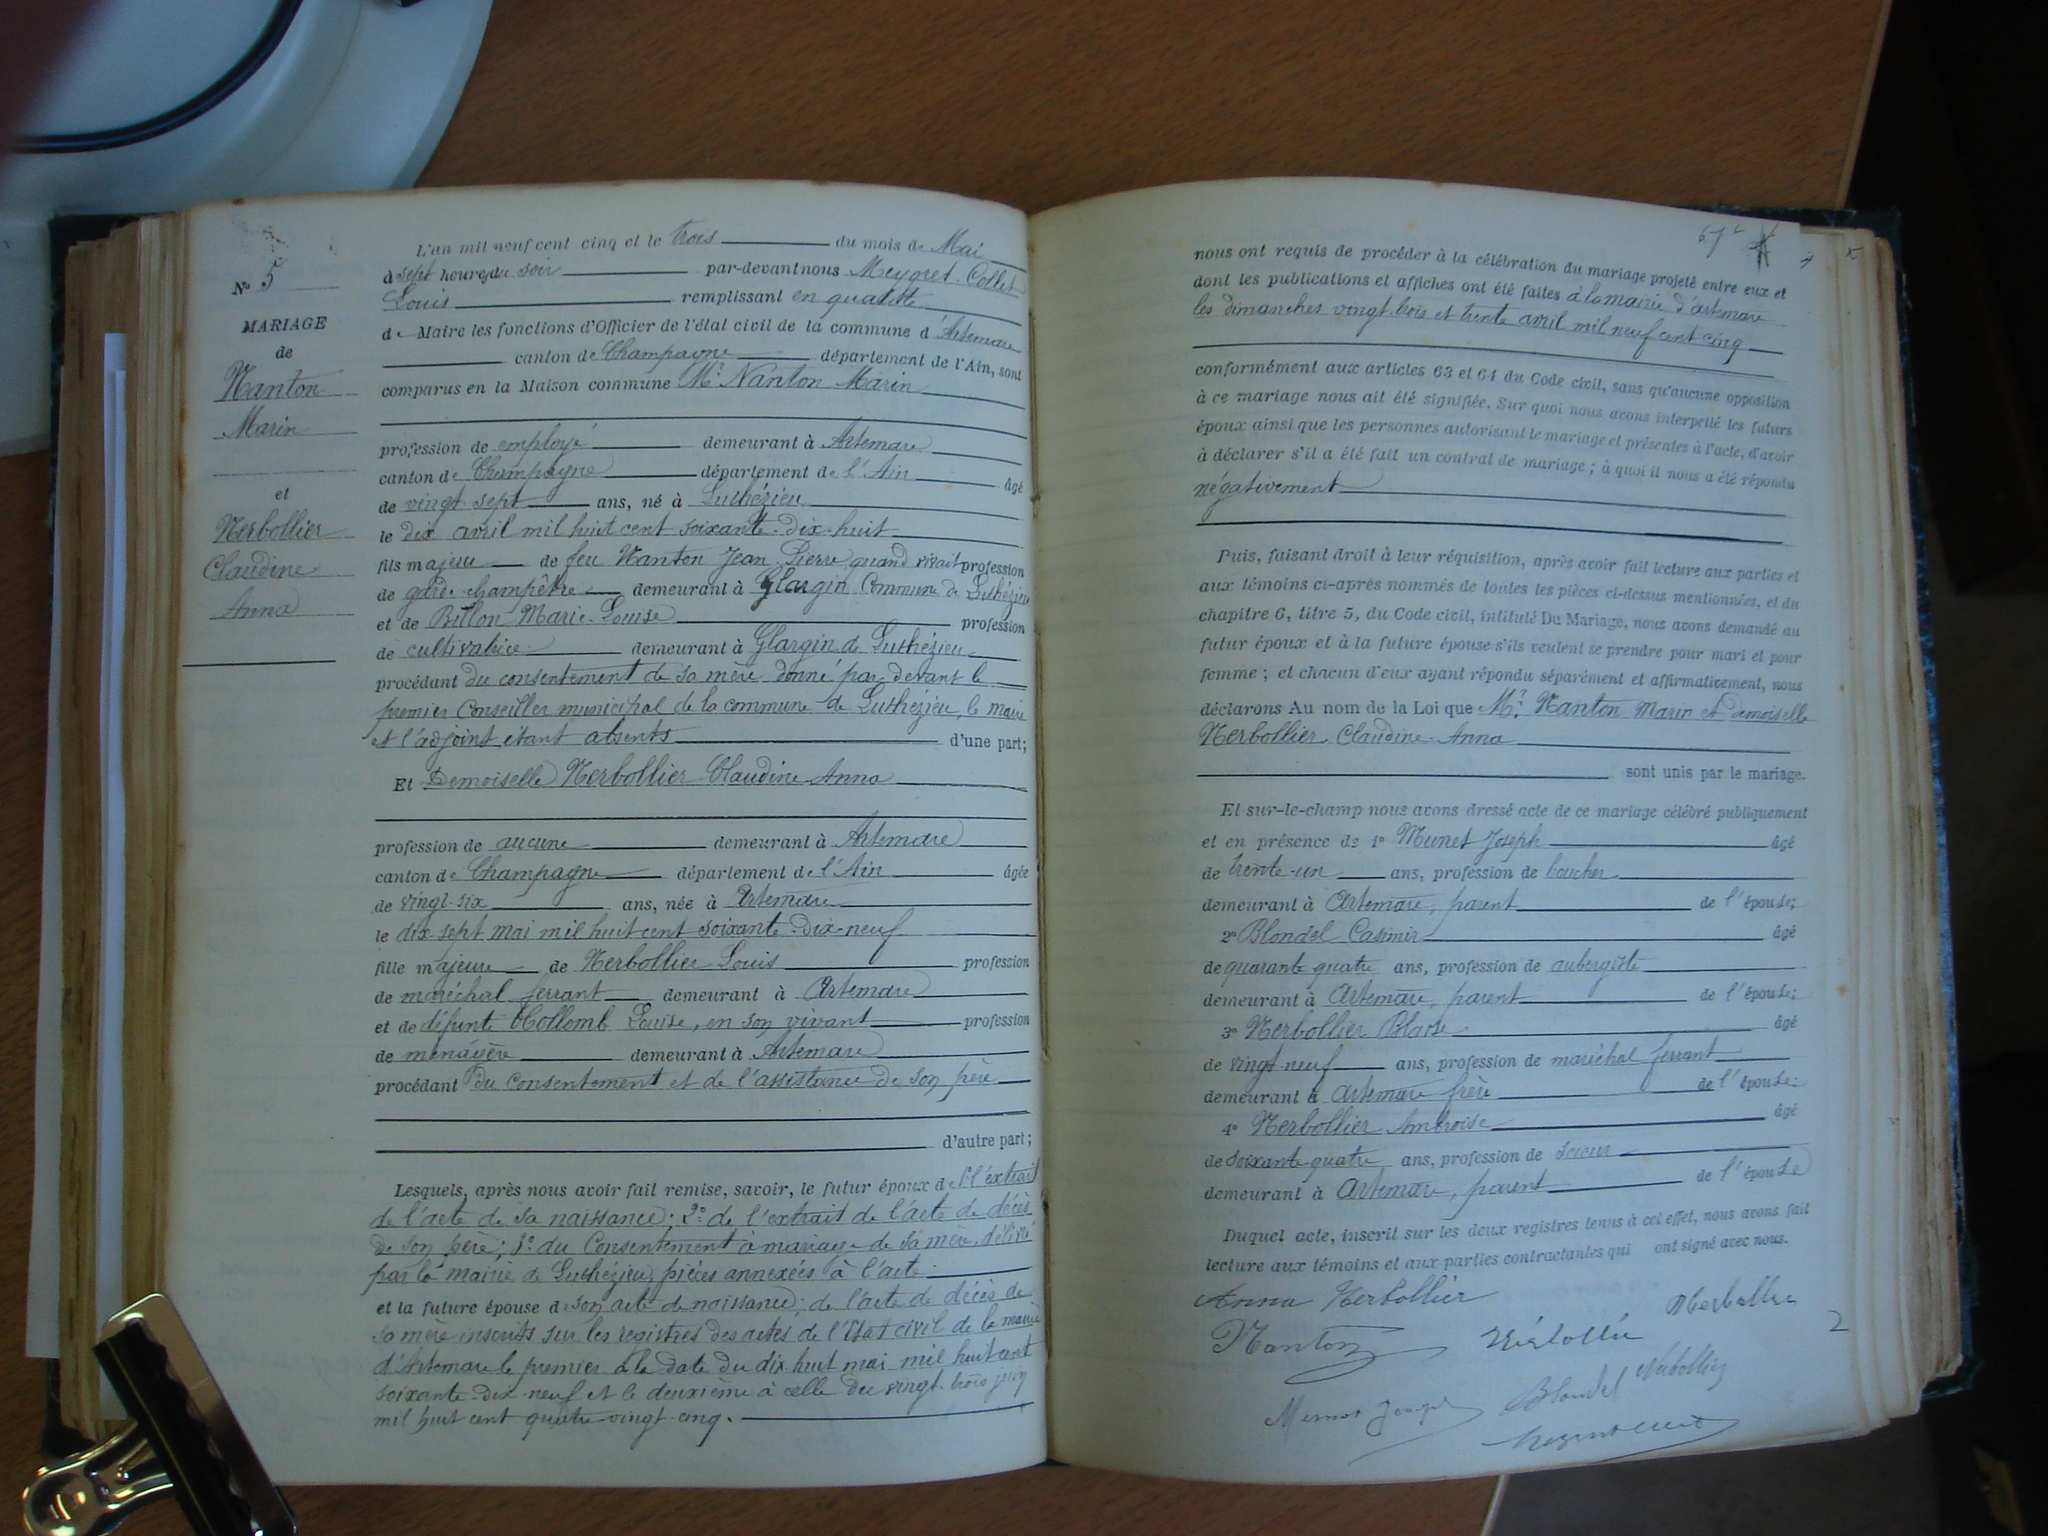 N° 5
MARIAGE
de
Nanton
Marin
et
Nerbollier
Claudine
Anna
L'an mil neuf cent cinq et le trois du mois de Mai
à sept heures du soir par-devant nous Meygret-Collet
Louis remplissant en qualité
de Maire les fonctions d'Officier de l'état civil de la commune d'Artemare
canton de Champagne département de l'Ain, sont
comparus en la Maison commune Mr Nanton Marin
profession de employé demeurant à Artemare
canton de Champagne département de l'Ain âgé
de vingt-sept ans, né à Luthézieu
le dix avril mil huit cent soixante-dix-huit
fils majeur de feu Nanton Jean Pierre quand vivait profession
de garde-champêtre demeurant à Glargin Commune de Luthézieu
et de Billon Marie-Louise profession
de cultivatrice demeurant à Glargin de Luthézieu
procédant du consentement de sa mère donné par devant le
premier Conseiller municipal de la commune de Luthézieu, le maire
et l'adjoint étant absents d'une part;
Et Demoiselle Nerbollier Claudine Anna
profession de aucune demeurant à Artemare
canton de Champagne département de l'Ain âgée
de vingt-six ans, née à Artemare
le dix sept mai mil huit cent soixante-dix-neuf
fille majeure de Nerbollier Louis profession
de maréchal ferrant demeurant à Artemare
et de défunte Collomb Louise, en son vivant profession
de ménagère demeurant à Artemare
procédant du consentement et de l'assistance de son père
d'autre part;
Lesquels, après nous avoir fait remise, savoir, le futur époux de 1° l'extrait
de l'acte de sa naissance; 2° de l'extrait de l'acte de décès
de son père; 3° du Consentement à mariage de sa mère, délivré
par la mairie de Luthézieu, pièces annexées à l'acte
et la future épouse de son acte de naissance; de l'acte de décès de
sa mère inscrits sur les registres des actes de l'Etat civil de la mairie
d'Artemare le premier à la date du dix huit mai mil huit cent
soixante-dix-neuf et le deuxième à celle du vingt-trois juin
mil huit cent quatre-vingt-cinq.
nous ont requis de procéder à la célébration du mariage projeté entre eux et
dont les publications et affiches ont été faites à la mairie d'artemare
les dimanches vingt-trois et trente avril mil neuf cent cinq
conformément aux articles 63 et 64 du Code civil, sans qu'aucune opposition
à ce mariage nous ait été signifiée. Sur quoi nous avons interpellé les futurs
époux ainsi que les personnes autorisant le mariage et présentes à l'acte, d'avoir
à déclarer s'il a été fait un contrat de mariage; à quoi il nous a été répondu
négativement
Puis, faisant droit à leur réquisition, après avoir fait lecture aux parties et
aux témoins ci-après nommés de toutes les pièces ci-dessus mentionnées, et du
chapitre 6, titre 5, du Code civil, intitulé Du Mariage, nous avons demandé au
futur époux et à la future épouse s'ils veulent se prendre pour mari et pour
femme; et chacun d'eux ayant répondu séparément et affirmativement, nous
déclarons Au nom de la Loi que Mr Nanton Marin et demoiselle
Nerbollier Claudine-Anna
sont unis par le mariage.
Et sur-le-champ nous avons dressé acte de ce mariage célébré publiquement
et en présence de 1° Munet Joseph âgé
de trente-un ans, profession de boucher
demeurant à Artemare, parent de l'épouse;
2° Blondel Casimir âgé
de quarante quatre ans, profession de aubergiste
demeurant à Artemare, parent de l'épouse;
3° Nerbollier Blaise âgé
de vingt-neuf ans, profession de maréchal ferrant
demeurant à artemare frère de l'épouse;
4° Nerbollier Ambroise âgé
de soixante-quatre ans, profession de scieur
demeurant à Artemare, parent de l'épouse
Duquel acte, inscrit sur les deux registres tenus à cet effet, nous avons fait
lecture aux témoins et aux parties contractantes qui ont signé avec nous.
Anna Nerbollier
Nerbollier
Nanton
Blondel Nerbollier
2